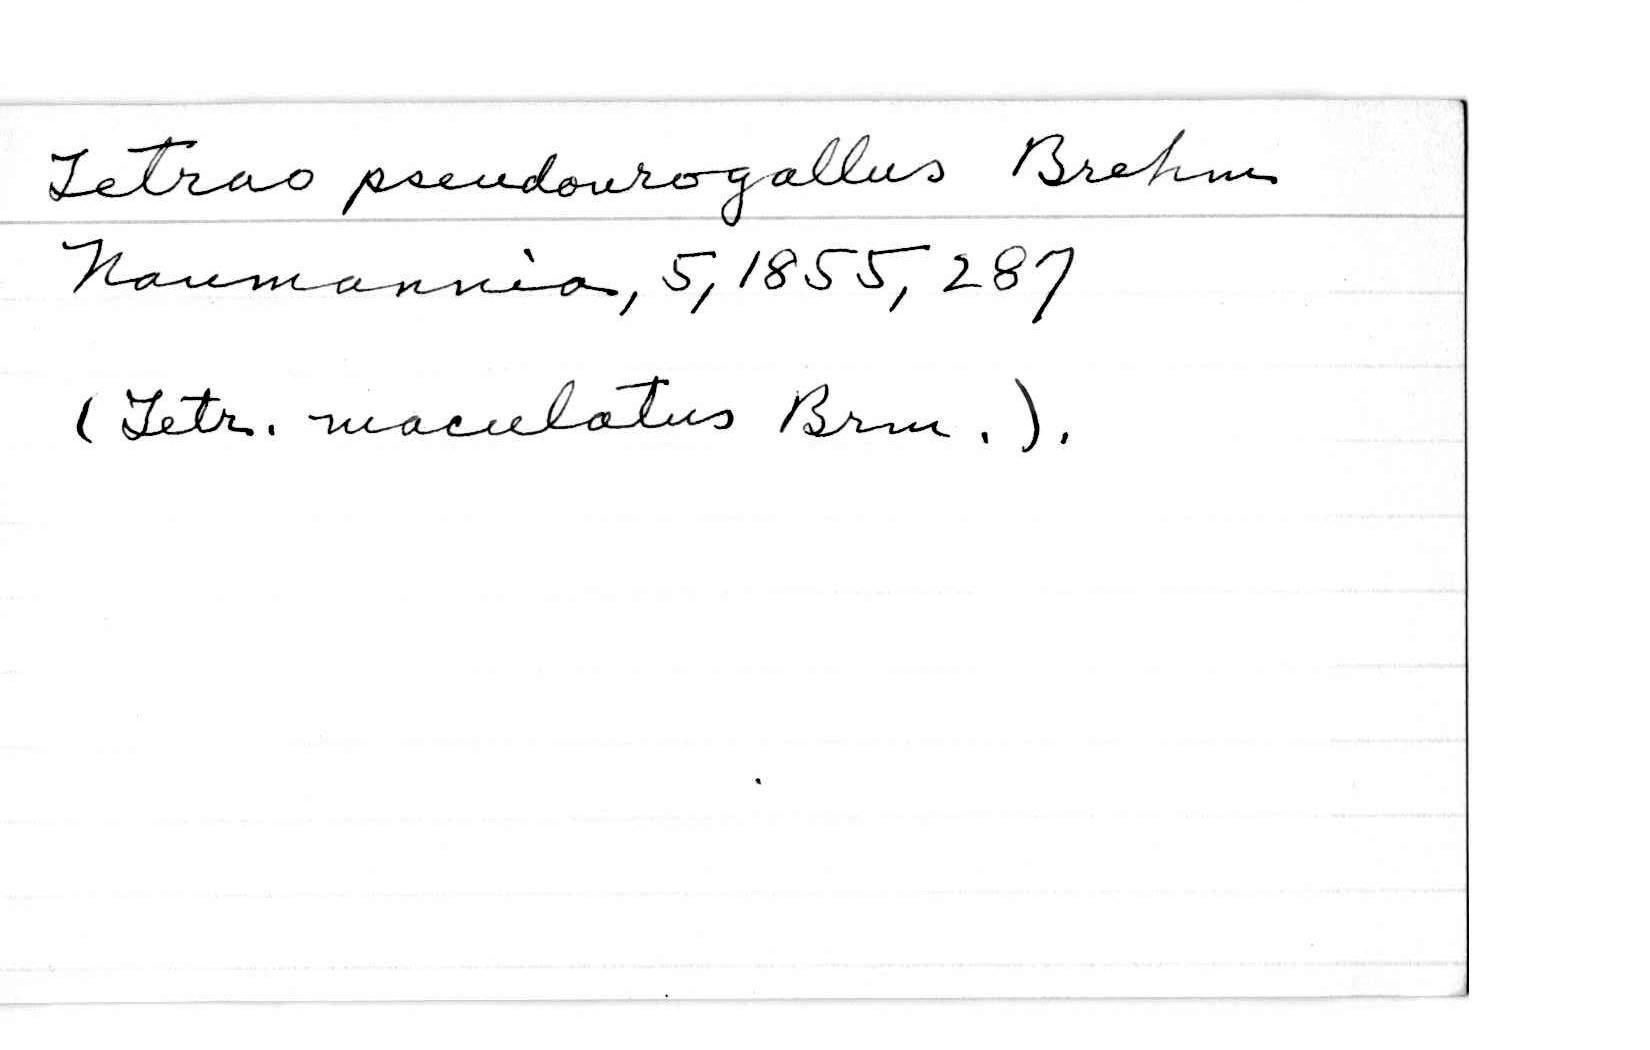 Tetrao pseudourogallus Brehm
Naumannia, 5, 1855, 287
(Tetr. maculatus Brm.).